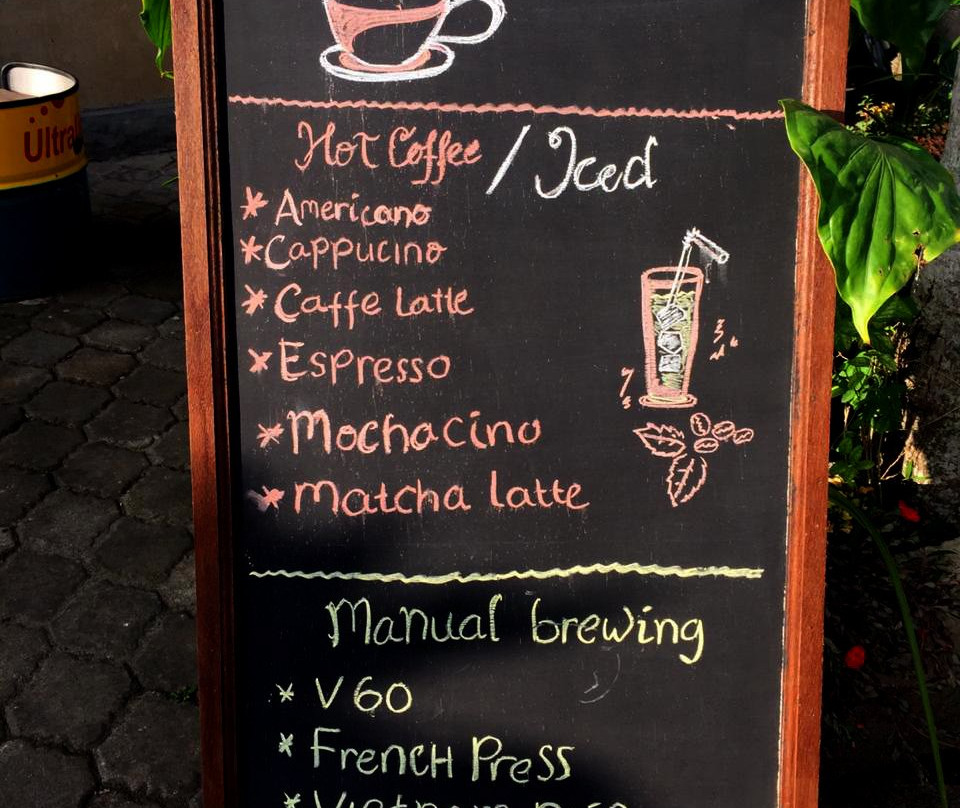 Ultra
Hot Coffee / Iced
* Americano
* Cappucino
* Caffe Latte
* Espresso
* Mochacino
* Matcha latte
Manual brewing
* V60
* French Press